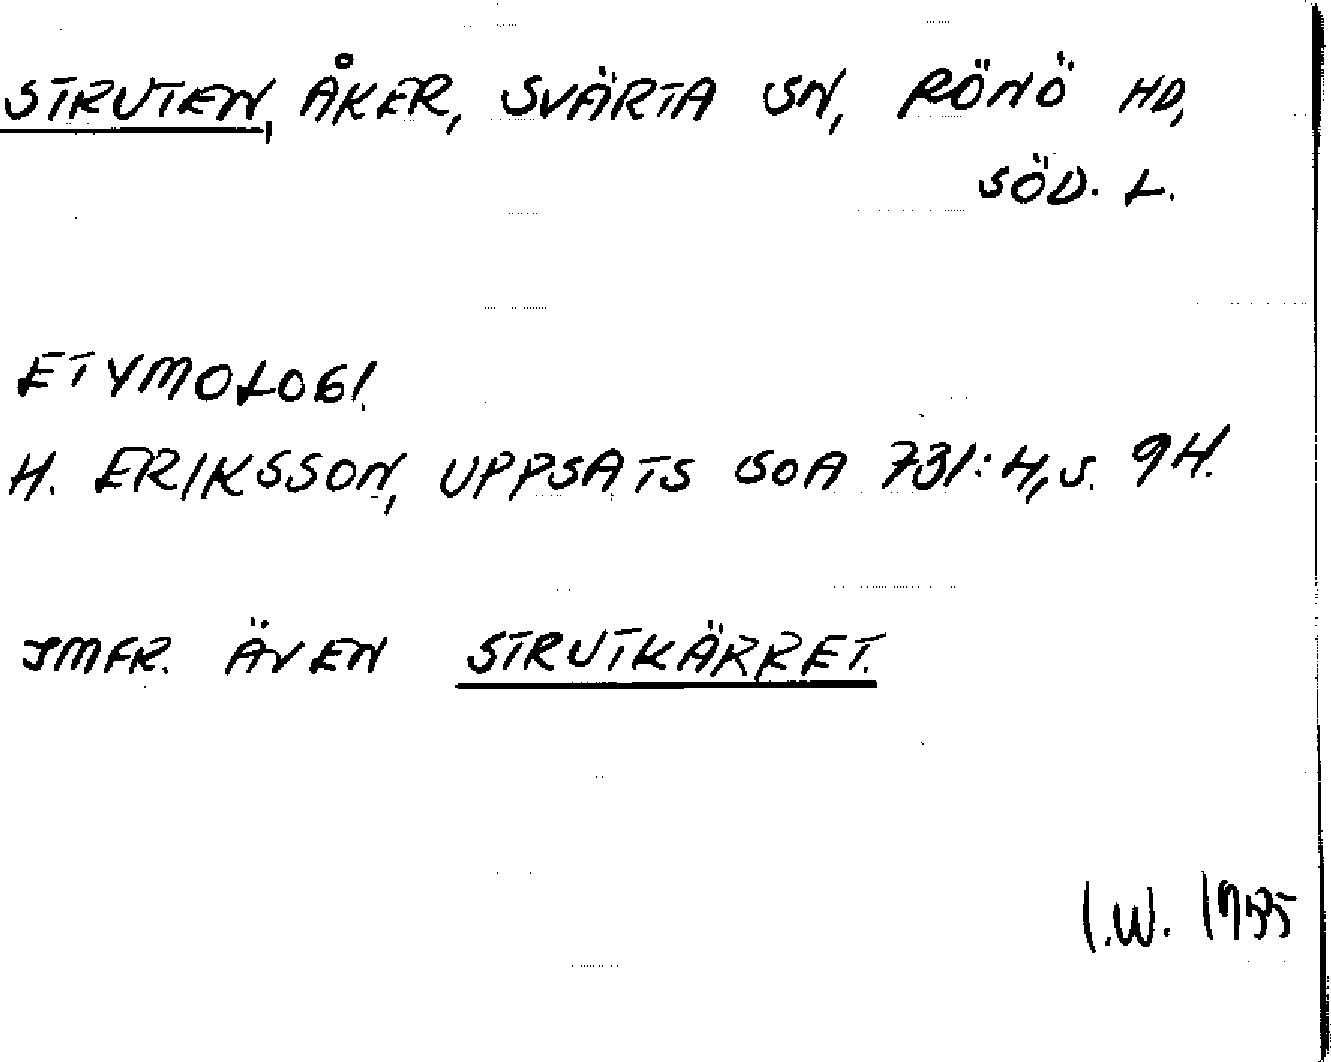 STRUTEN, ÅKER, SVÄRTA SN, RÖNÖ HD,
SÖD. L.
ETYMOLOGI.
H. ERIKSSON, UPPSATS SOA 731:4, S. 94.
JMFR. ÄVEN STRUTKÄRRET.
I.W. 1955